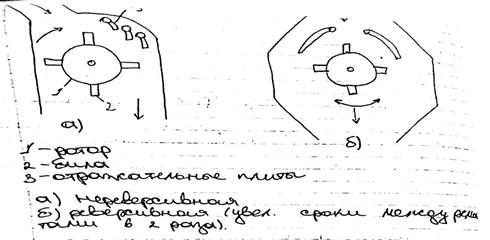 3
1
2
а)
б)
1 - ротор
2 - била
3 - отражательные плиты
а) нереверсивная
б) реверсивная (увел. сроки между ремон
тами в 2 раза).